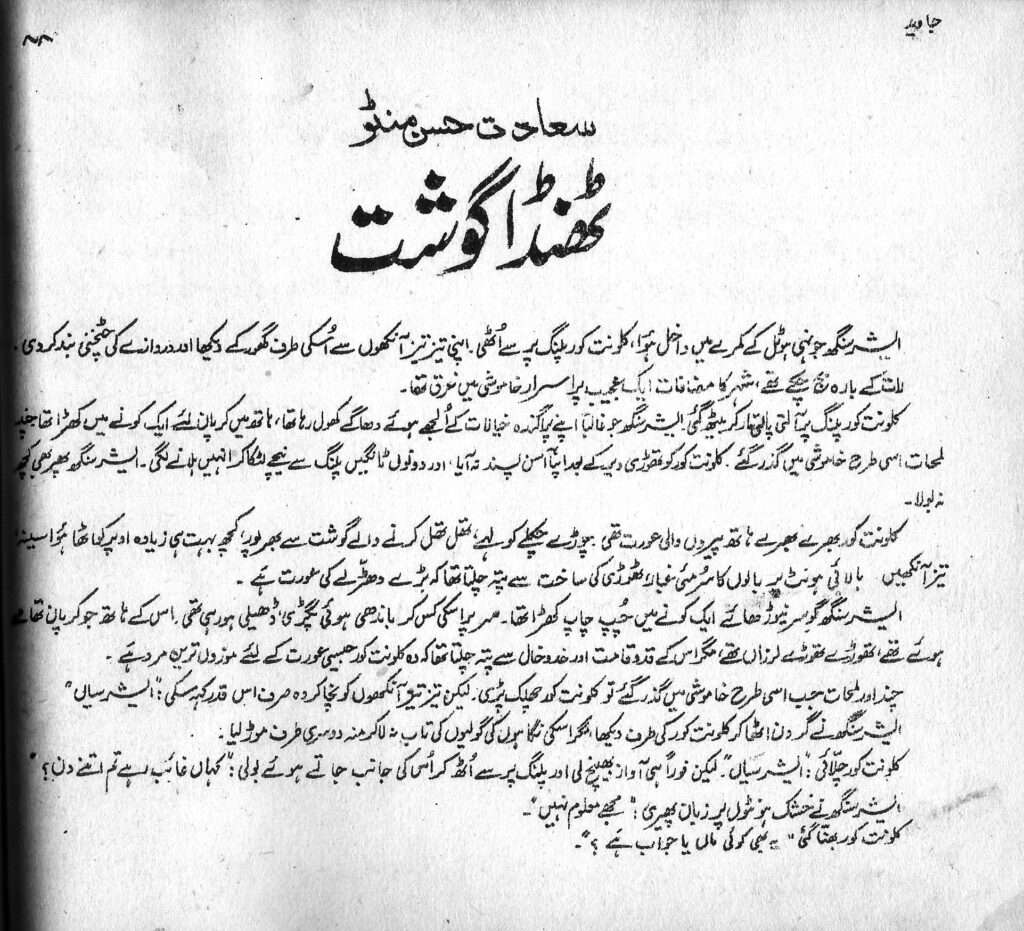 جاوید
۸۸
سعادت حسن منٹو
ٹھنڈا گوشت
ایشر سنگھ جونہی ہوٹل کے کمرے میں داخل ہؤا، کلونت کور پلنگ پر سے اُٹھی۔ اپنی تیز تیز آنکھوں سے اُسکی طرف گھور کے دیکھا اور دروازے کی چٹخنی بند کر دی۔
رات کے بارہ بج چکے تھے، شہر کا مضافات ایک عجیب پراسرار خاموشی میں غرق تھا۔
کلونت کور پلنگ پر آلتی پالتی مار کر بیٹھ گئی۔ ایشر سنگھ جو غالباً اپنے پراگندہ خیالات کے اُلجھے ہوئے دھاگے کھول رہا تھا، ہاتھ میں کرپان لئے ایک کونے میں کھڑا تھا۔ چند
لمحات اسی طرح خاموشی میں گذر گئے۔ کلونت کور کو تھوڑی دیر کے بعد اپنا آسن پسند نہ آیا، اور دونوں ٹانگیں پلنگ سے نیچے لٹکا کر انہیں ہلانے لگی۔ ایشر سنگھ پھر بھی کچھ
نہ بولا۔
کلونت کور بھرے بھرے ہاتھ پیروں والی عورت تھی۔ چوڑے چکلے کولہے، تھل تھل کرنے والے گوشت سے بھرپور کچھ بہت ہی زیادہ اوپر کو اٹھا ہؤا سینہ،
تیز آنکھیں بالائی ہونٹ پر بالوں کا سُرمئی غبار، ٹھوڑی کی ساخت سے پتہ چلتا تھا کہ بڑے دھڑلّے کی عورت ہے۔
ایشر سنگھ گو سر نیوڑھائے ایک کونے میں چُپ چاپ کھڑا تھا۔ سر پر اسکی کس کر باندھی ہوئی پگڑی ڈھیلی ہو رہی تھی۔ اس کے ہاتھ جو کرپان تھامے
ہوئے تھے، تھوڑے تھوڑے لرزاں تھے، مگر اس کے قدوقامت اور خدوخال سے پتہ چلتا تھا کہ وہ کلونت کور جیسی عورت کے لئے موزوں ترین مرد ہے۔
چند اور لمحات جب اسی طرح خاموشی میں گذر گئے تو کلونت کور چھلک پڑی۔ لیکن تیز تیز آنکھوں کو نچا کر وہ صرف اس قدر کہہ سکی: "ایشر سیاں"
ایشر سنگھ نے گردن اٹھا کر کلونت کور کی طرف دیکھا، مگر اسکی نگاہوں کی گولیوں کی تاب نہ لا کر منہ دوسری طرف موڑ لیا۔
کلونت کور چلّائی: "ایشر سیاں"۔ لیکن فوراً ہی آواز بھینچ لی اور پلنگ پر سے اُٹھ کر اُس کی جانب جاتے ہوئے بولی: "کہاں غائب رہے تم اتنے دن؟"
ایشر سنگھ نے خشک ہونٹوں پر زبان پھیری: "مجھے معلوم نہیں"۔
کلونت کور بھنّا گئی "یہ بھی کوئی ماں یا جواب ہے؟"۔